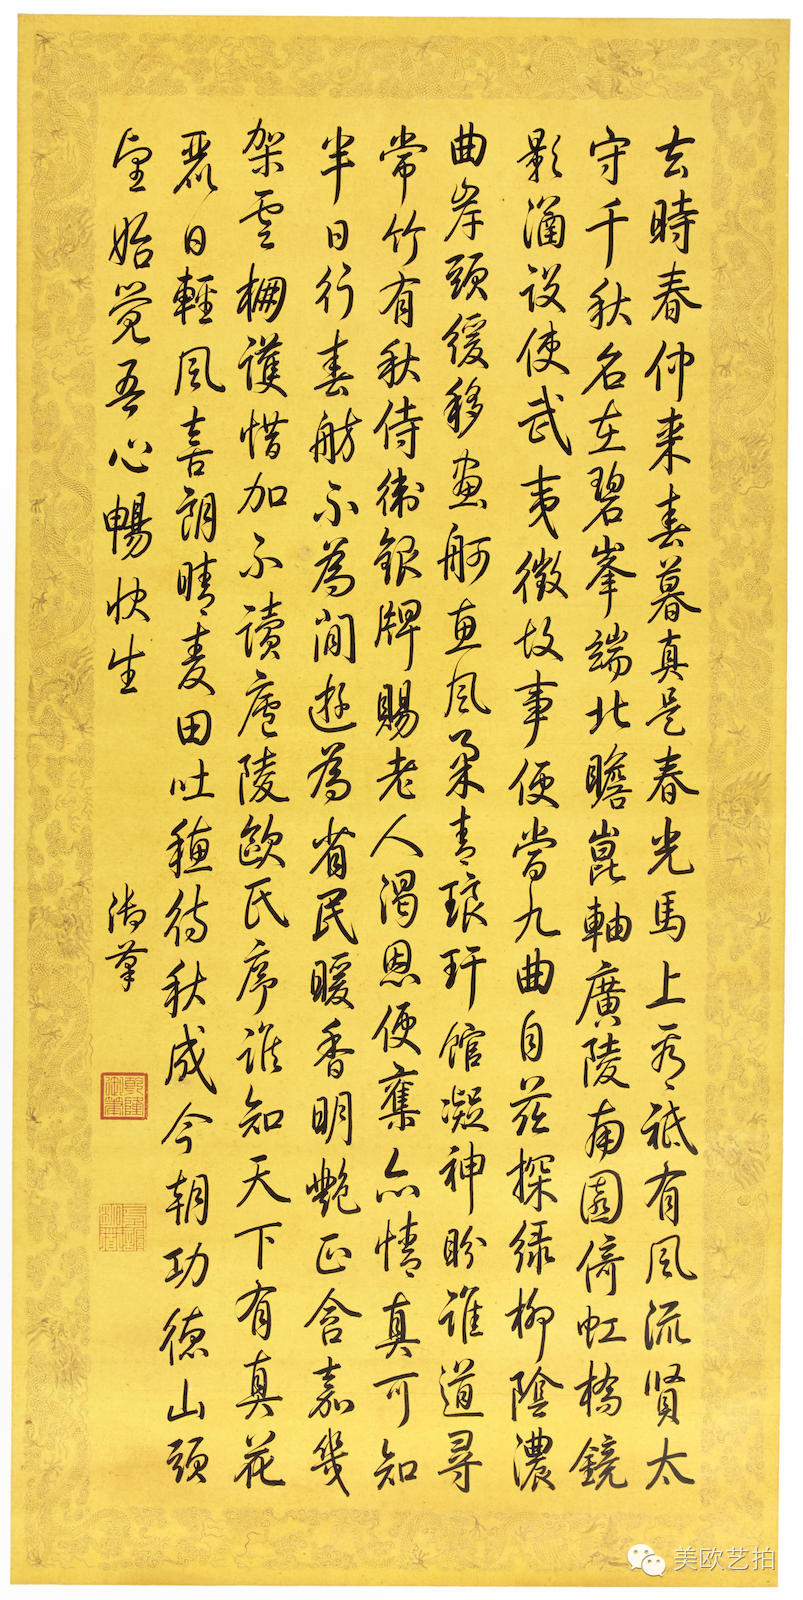 去時春仲来春暮真是春光馬上看祗有風流賢太
守千秋名在碧峯端北瞻崑軸廣陵南園倚虹橋鏡
影涵設使武夷徵故事便當九曲自茲探綠柳陰濃
曲岸頭緩移畫舸惠風柔青琅玕館凝神盼誰道尋
常竹有秋侍衛銀牌賜老人渴恩便奮亦情真可知
半日行春舫不為閒遊為省民暖香明艷正含嘉幾
架雲棚護惜加不讀廬陵歐氏序誰知天下有真花
麗日輕風喜朗晴麥田吐穗待秋成今朝功德山頭
望始覺吾心暢快生
御筆
乾隆御筆
美欧艺拍